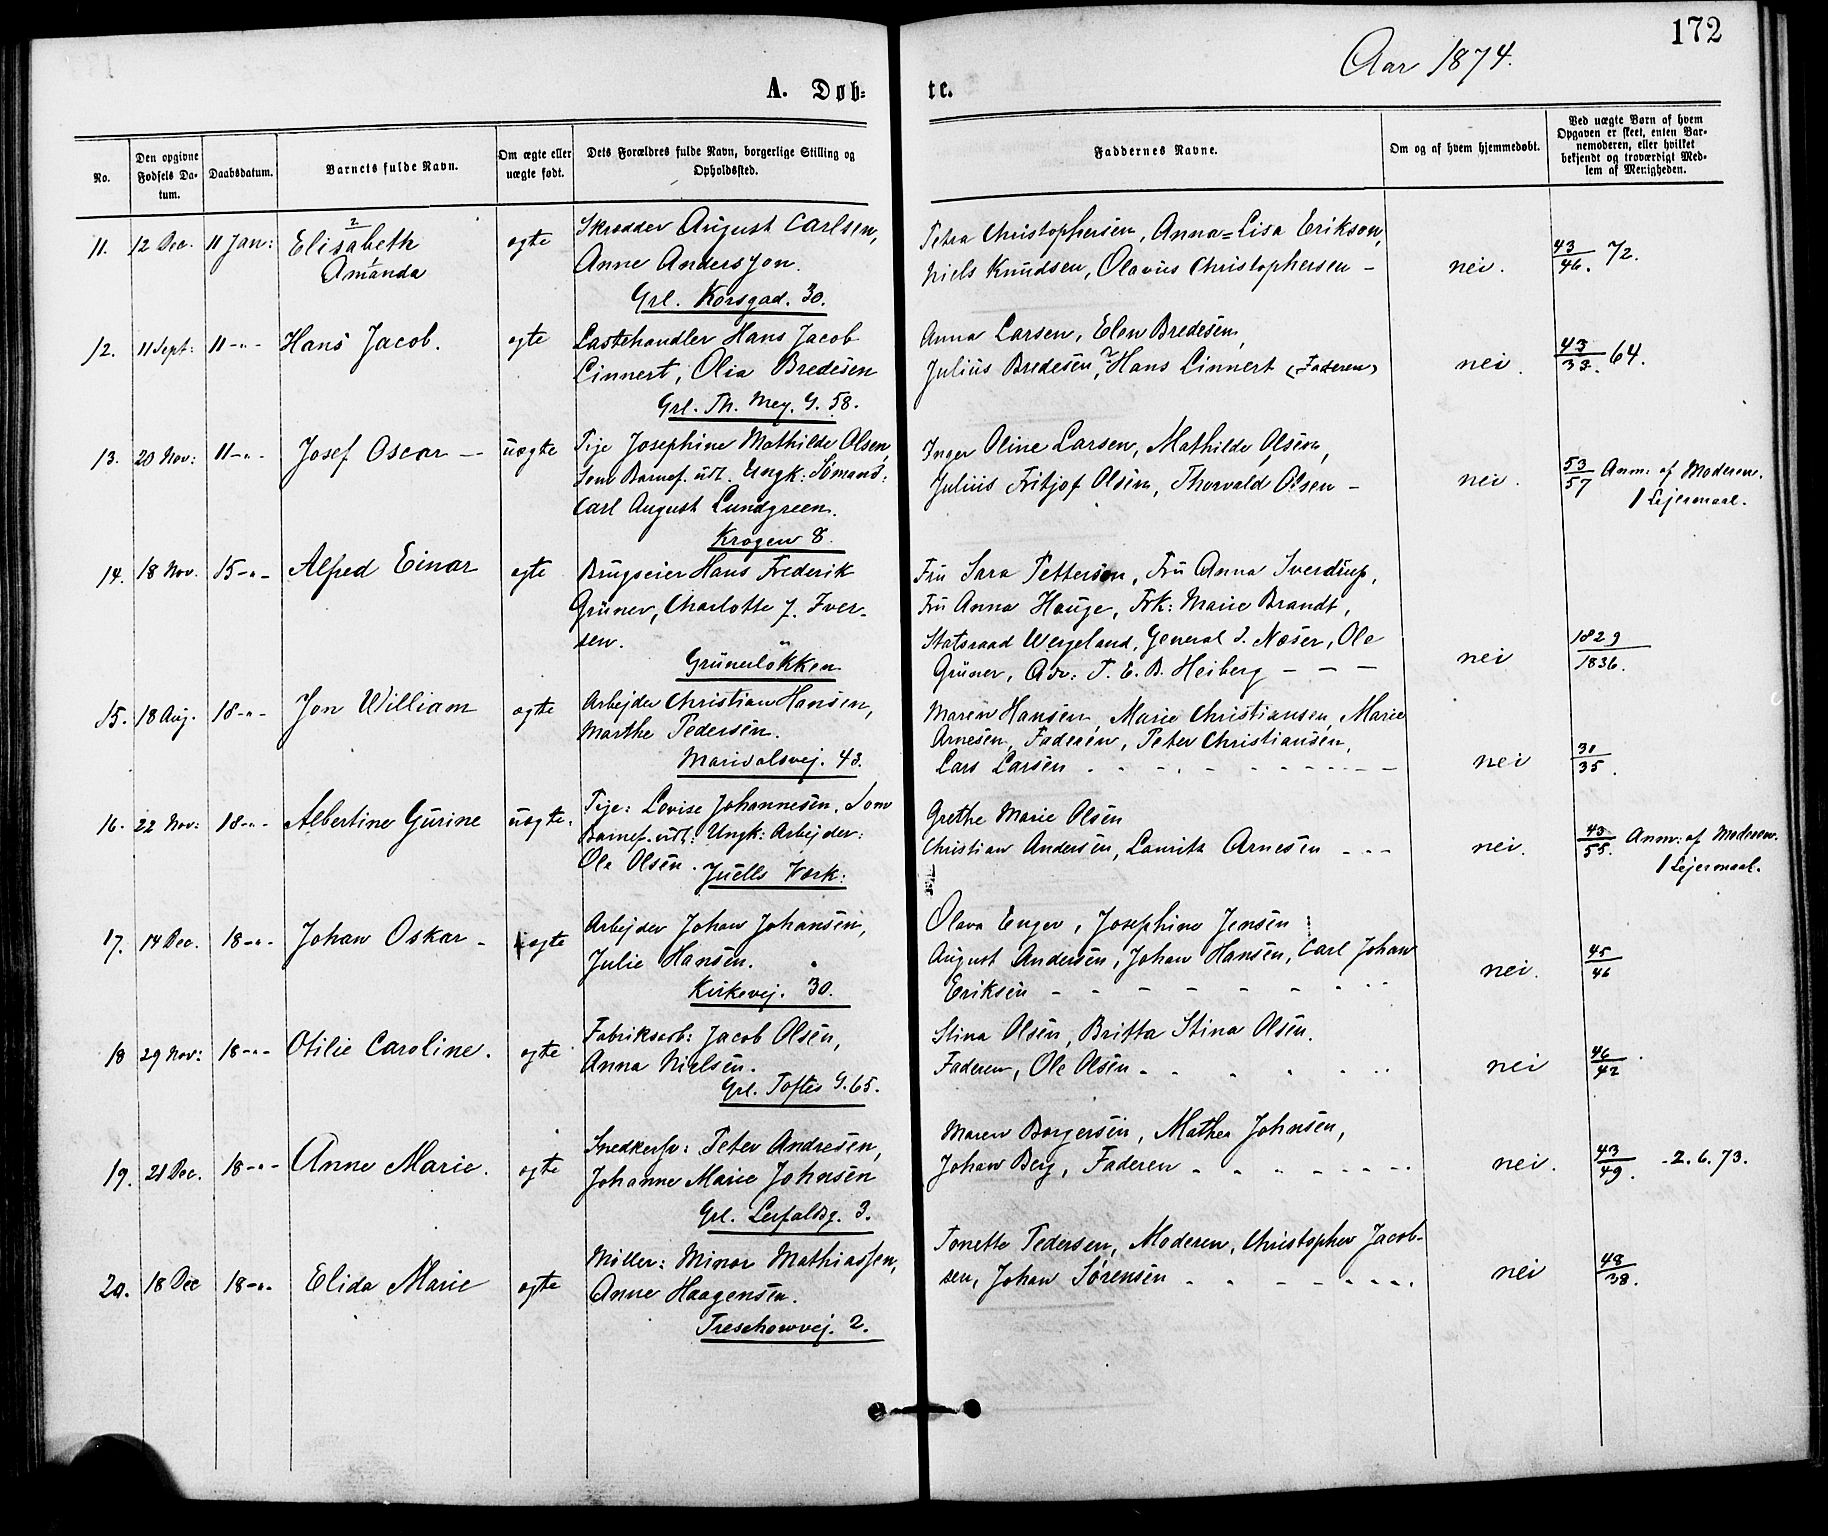 172
Aar 1874.
A. Døb=
te.
No.
Den opgivne Fødsels Da-tum.
Daabsdatum.
Barnets fulde Navn.
Om ægte eller uægte født.
Dets Forældres fulde Navn, borgerlige Stilling og Opholdssted.
Faddernes Navne.
Om og af hvem hjemmedøbt.
Ved uægte Børn af hvem Opgaven er skeet, enten Bar-nemoderen, eller hvilket bekjendt og troværdigt Med-lem af Menigheden.
11. 12 Dec. 11 Jan: Elisabeth 2 Amanda 1 ægte
Skrædder August Carlsen,
Anne Andersson.
Grl. Korsgad. 30.
Petra Christophersen, Anna=Lisa Erikson,
Niels Knudsen, Olavus Christophersen –
nei. 43/46. 72.
12. 11 Sept: 11 -"- Hans Jacob. ægte
Lastehandler Hans Jacob
Linnert, Olia Bredesen
Grl. Th. Mey. G. 58.
Anna Larsen, Elen Bredesen,
Julius Bredesen, Hans Linnert (Faderen)
nei. 43/33. 64.
13. 20 Nov: 11 -"- Josef Oscar – uægte
Pije Josephine Mathilde Olsen,
Som Barnef. udl. Ungk: Sömand:
Carl August Lundgreen.
Krogen 8.
Inger Oline Larsen, Mathilde Olsen,
Julius Fritjof Olsen, Thorvald Olsen –
nei. 53/57 Anm: af Moderen.
1 Lejermaal.
14. 18 Nov. 15 -"- Alfred Einar ægte
Brugseier Hans Frederik
Grüner, Charlotte J. Iver-
sen.
Grünerløkken
Fru Sara Petterson, Fru Anna Sverdrup,
Fru Anna Hauge, Frk: Marie Brandt,
Statsraad Wergeland, General J. Næser, Ole
Grüner, Adv: P. E. B. Heiberg – – –
nei 1829/1836.
15. 18 Aug. 18 -"- Jon William ægte
Arbejder Christian Hansen,
Marthe Pedersen.
Maridalsvej. 43.
Maren Hansen, Marie Christiansen, Marie
Arnesen, Faderen, Peter Christiansen,
Lars Larsen
nei 30/35.
16. 22 Nov: 18 -"- Albertine Gurine uægte.
Pige: Lovise Johannesen. Som
Barnef. udl: Ungk: Arbejder:
Ole Olsen. Juells Værk:
Grethe Marie Olsen
Christian Andersen, Lauritz Arnesen – – –
nei. 43/55. Anm: af Moderen.
1 Lejermaal.
17. 14 Dec. 18 -"- Johan Oskar – ægte
Arbejder Johan Johansen,
Julie Hansen.
Kirkevej. 30.
Olava Enger, Josephine Jensen
August Andersen, Johan Hansen, Carl Johan
Eriksen
nei. 45/46
18 29 Nov: 18 -"- Otilie Caroline. ægte
Fabriksarb: Jacob Olsen,
Anna Nielsen.
Grl. Toftes G. 65.
Stina Olsen, Britta Stina Olsen.
Faderen, Ole Olsen
nei 46/42
19. 21 Dec. 18 -"- Anne Marie. ægte
Snedkersv: Peter Andresen,
Johanne Marie Johnsen
Grl. Leifaldsg. 3.
Maren Borgersen, Mathea Johnsen,
Johan Berg, Faderen
nei. 43/49. -2.6.73.
20. 18 Dec 18 -"- Elida Marie ægte
Møller: Minor Mathiassen,
Anne Haagensen.
Treschowvej. 2.
Tonette Pedersen, Moderen, Christopher Jacob-
sen, Johan Sørensen
nei 48/38.